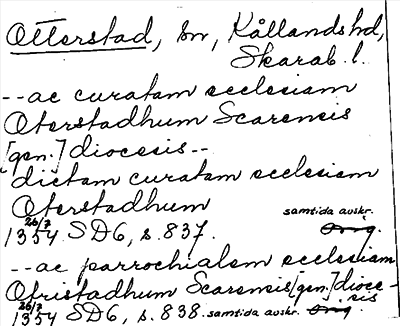 Otterstad, sn, Kållands hd,
Skarab. l.
-- ac curatam ecclesiam
Oterstadhum Scarensis
[gen.] diocesis --
dictam curatam ecclesiam
Oterstadhum
26/7 1354 SD6, s. 837. samtida avskr. Orig.
-- ac parrochialem ecclesiam
Ofristadhum Scarensis [gen.] dioce-
sis
26/7 1354 SD6, s. 838. samtida avskr. Orig.